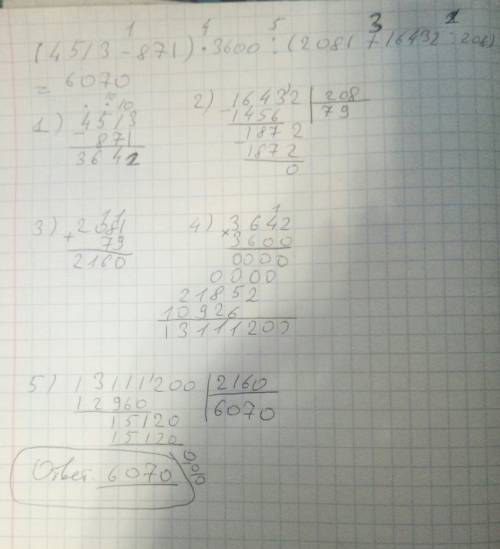 1 4 5 3 2
(4513 - 871) · 3600 : (2081 + 16432 : 208)
= 6070
1) 4513
- 871
3642
2) 16432 | 208
1456 79
- 1872
1872
0
3) + 2081
79
2160
4) × 3642
3600
0000
0000
21852
10926
13111200
5) 13111200 | 2160
12960 6070
15120
15120
00
Ответ: 6070